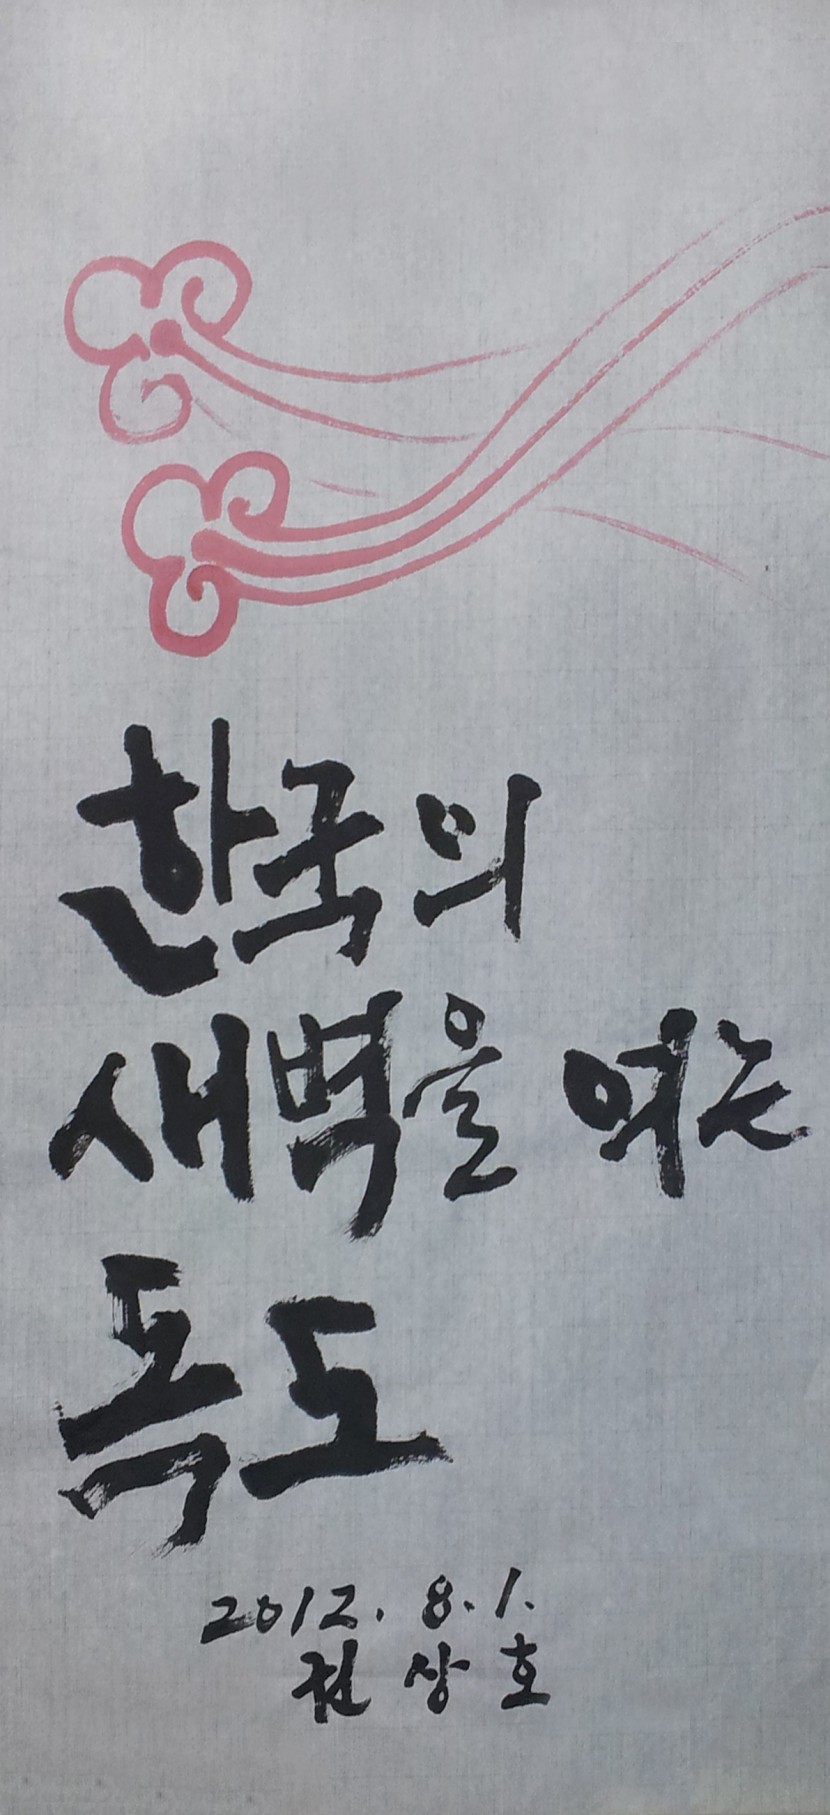 한국의
새벽을 여는
독도
2012. 8. 1.
권상호